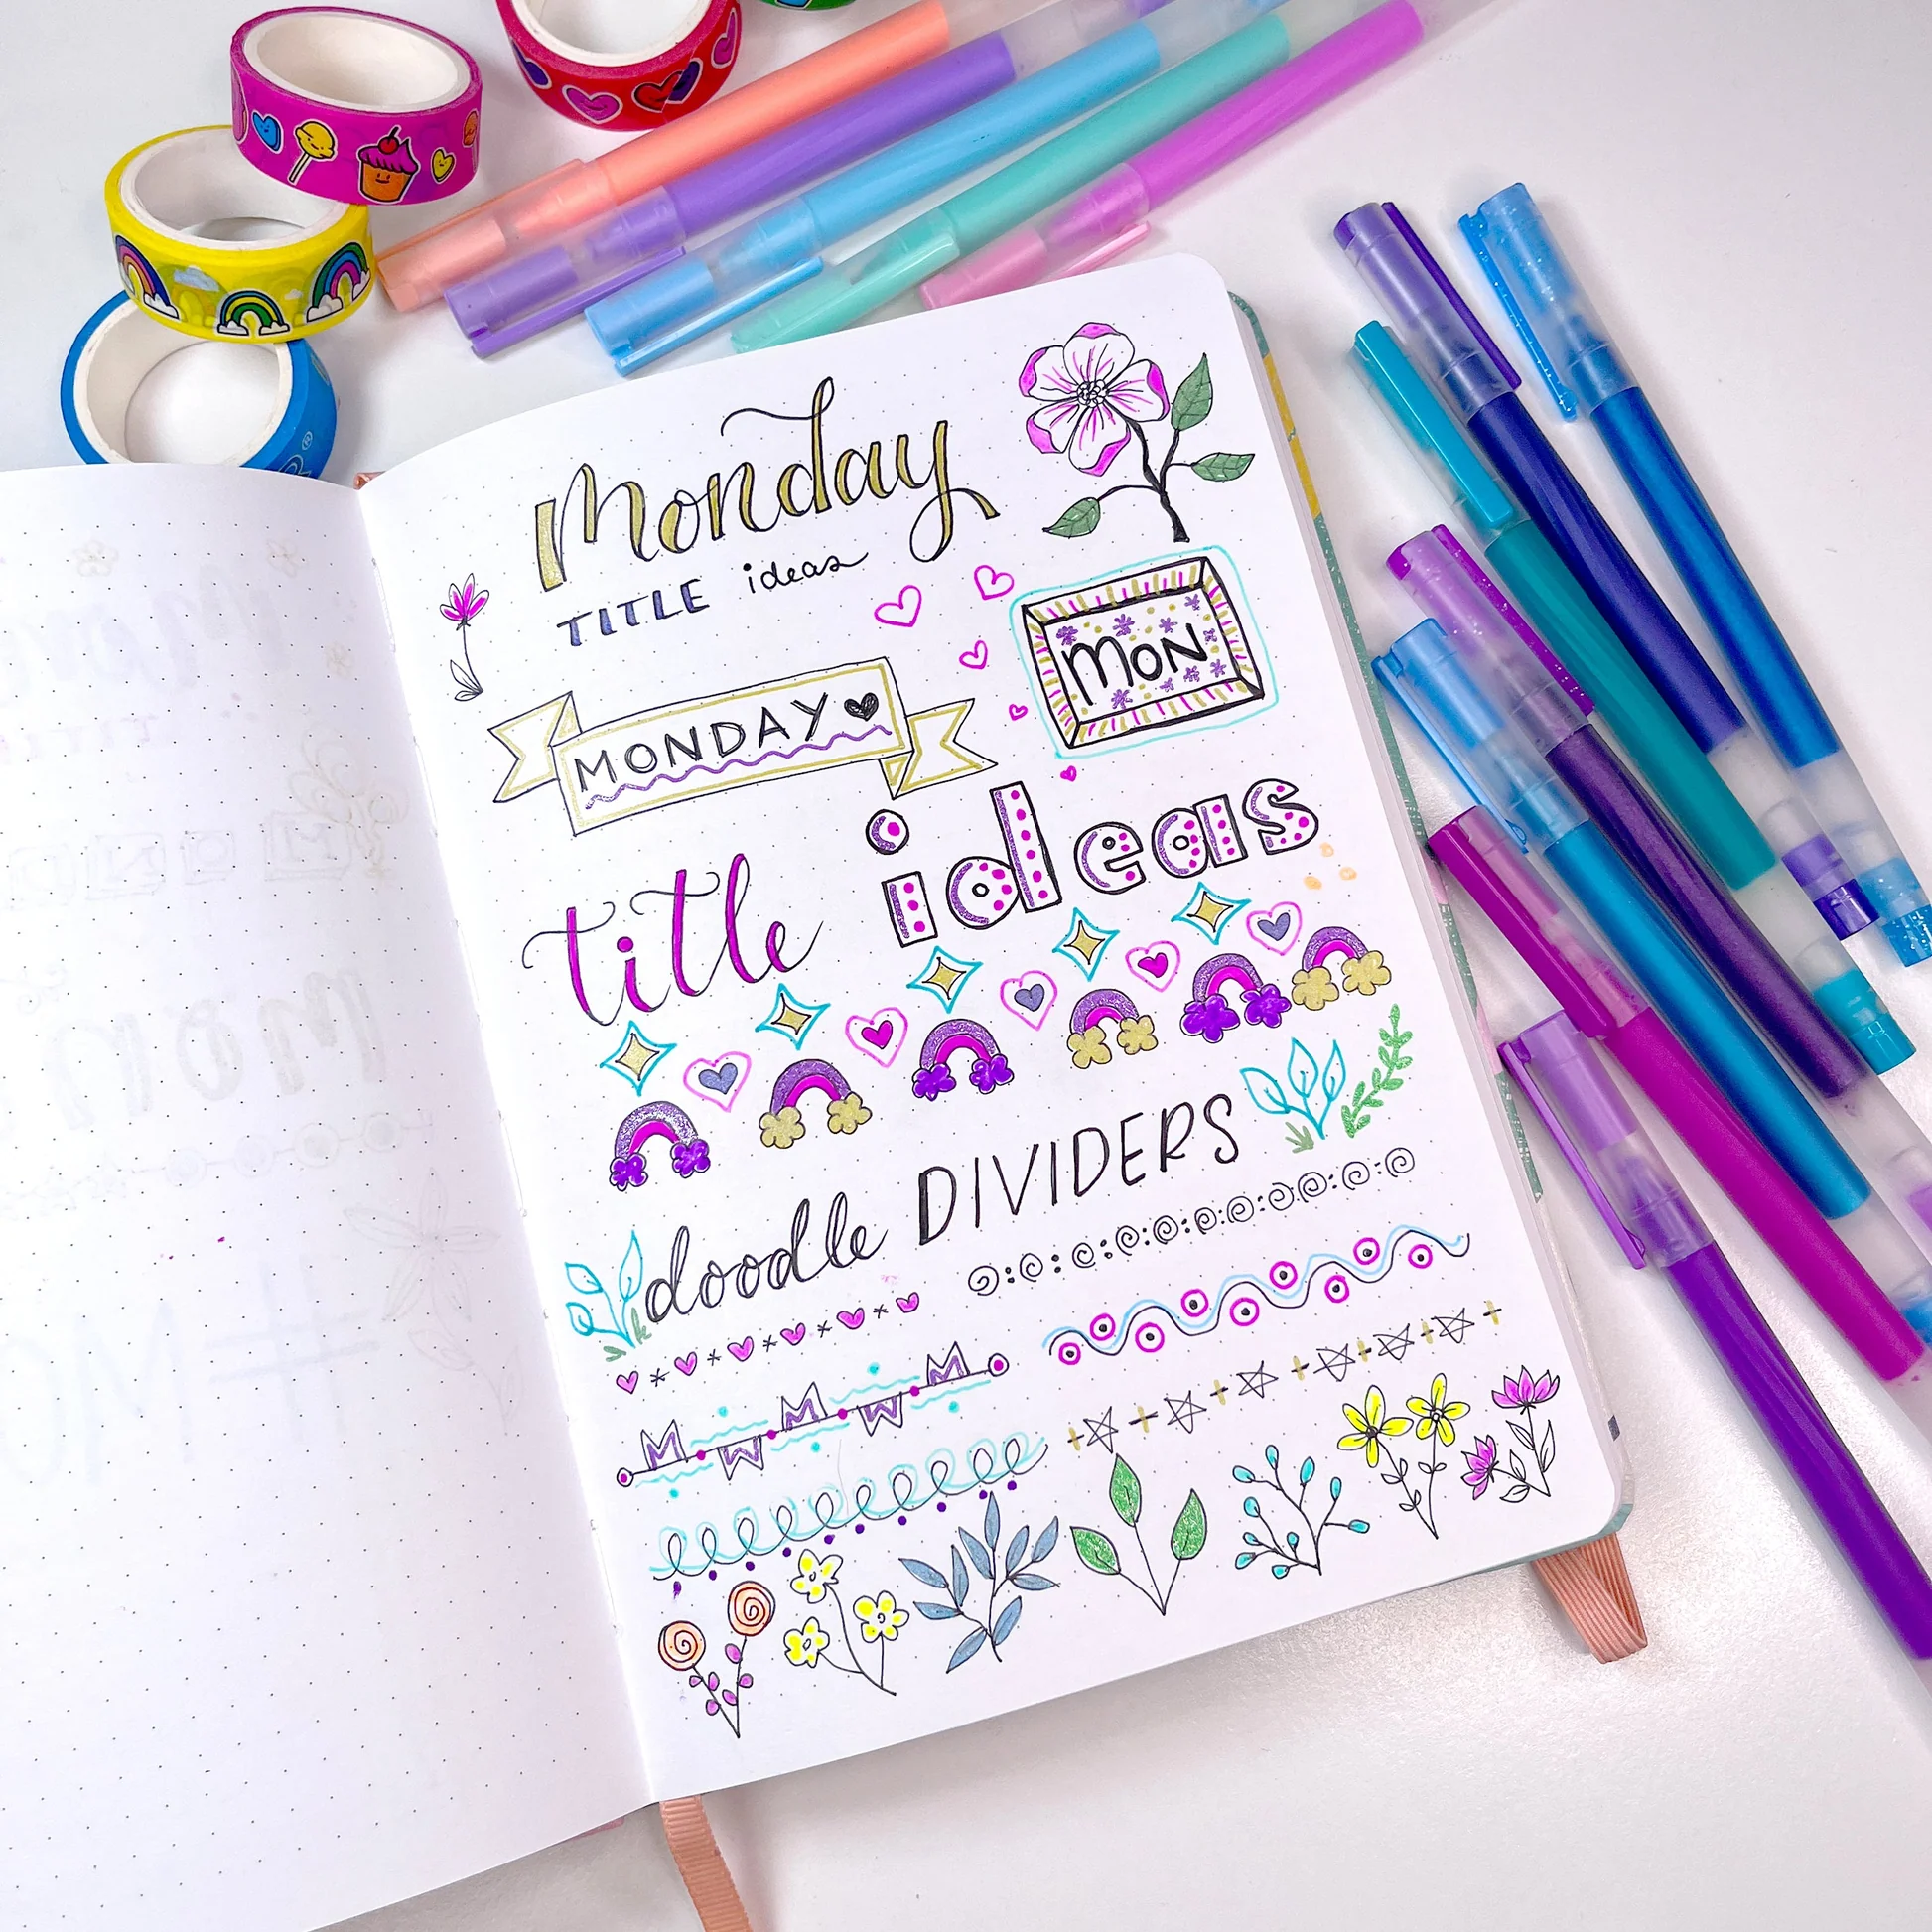 Monday
TITLE ideas
MONDAY
MON
title ideas
doodle DIVIDERS
M W M W M